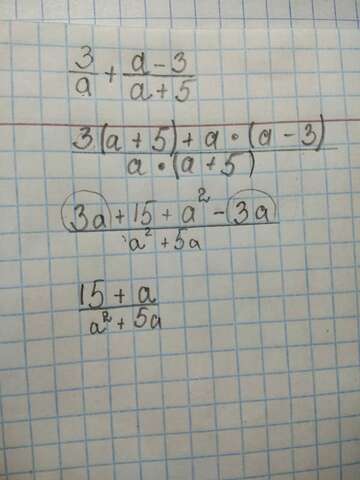 3/a + a-3/a+5
3(a+5)+a•(a-3)/a•(a+5)
3a+15+a²-3a/a²+5a
15+a/a²+5a